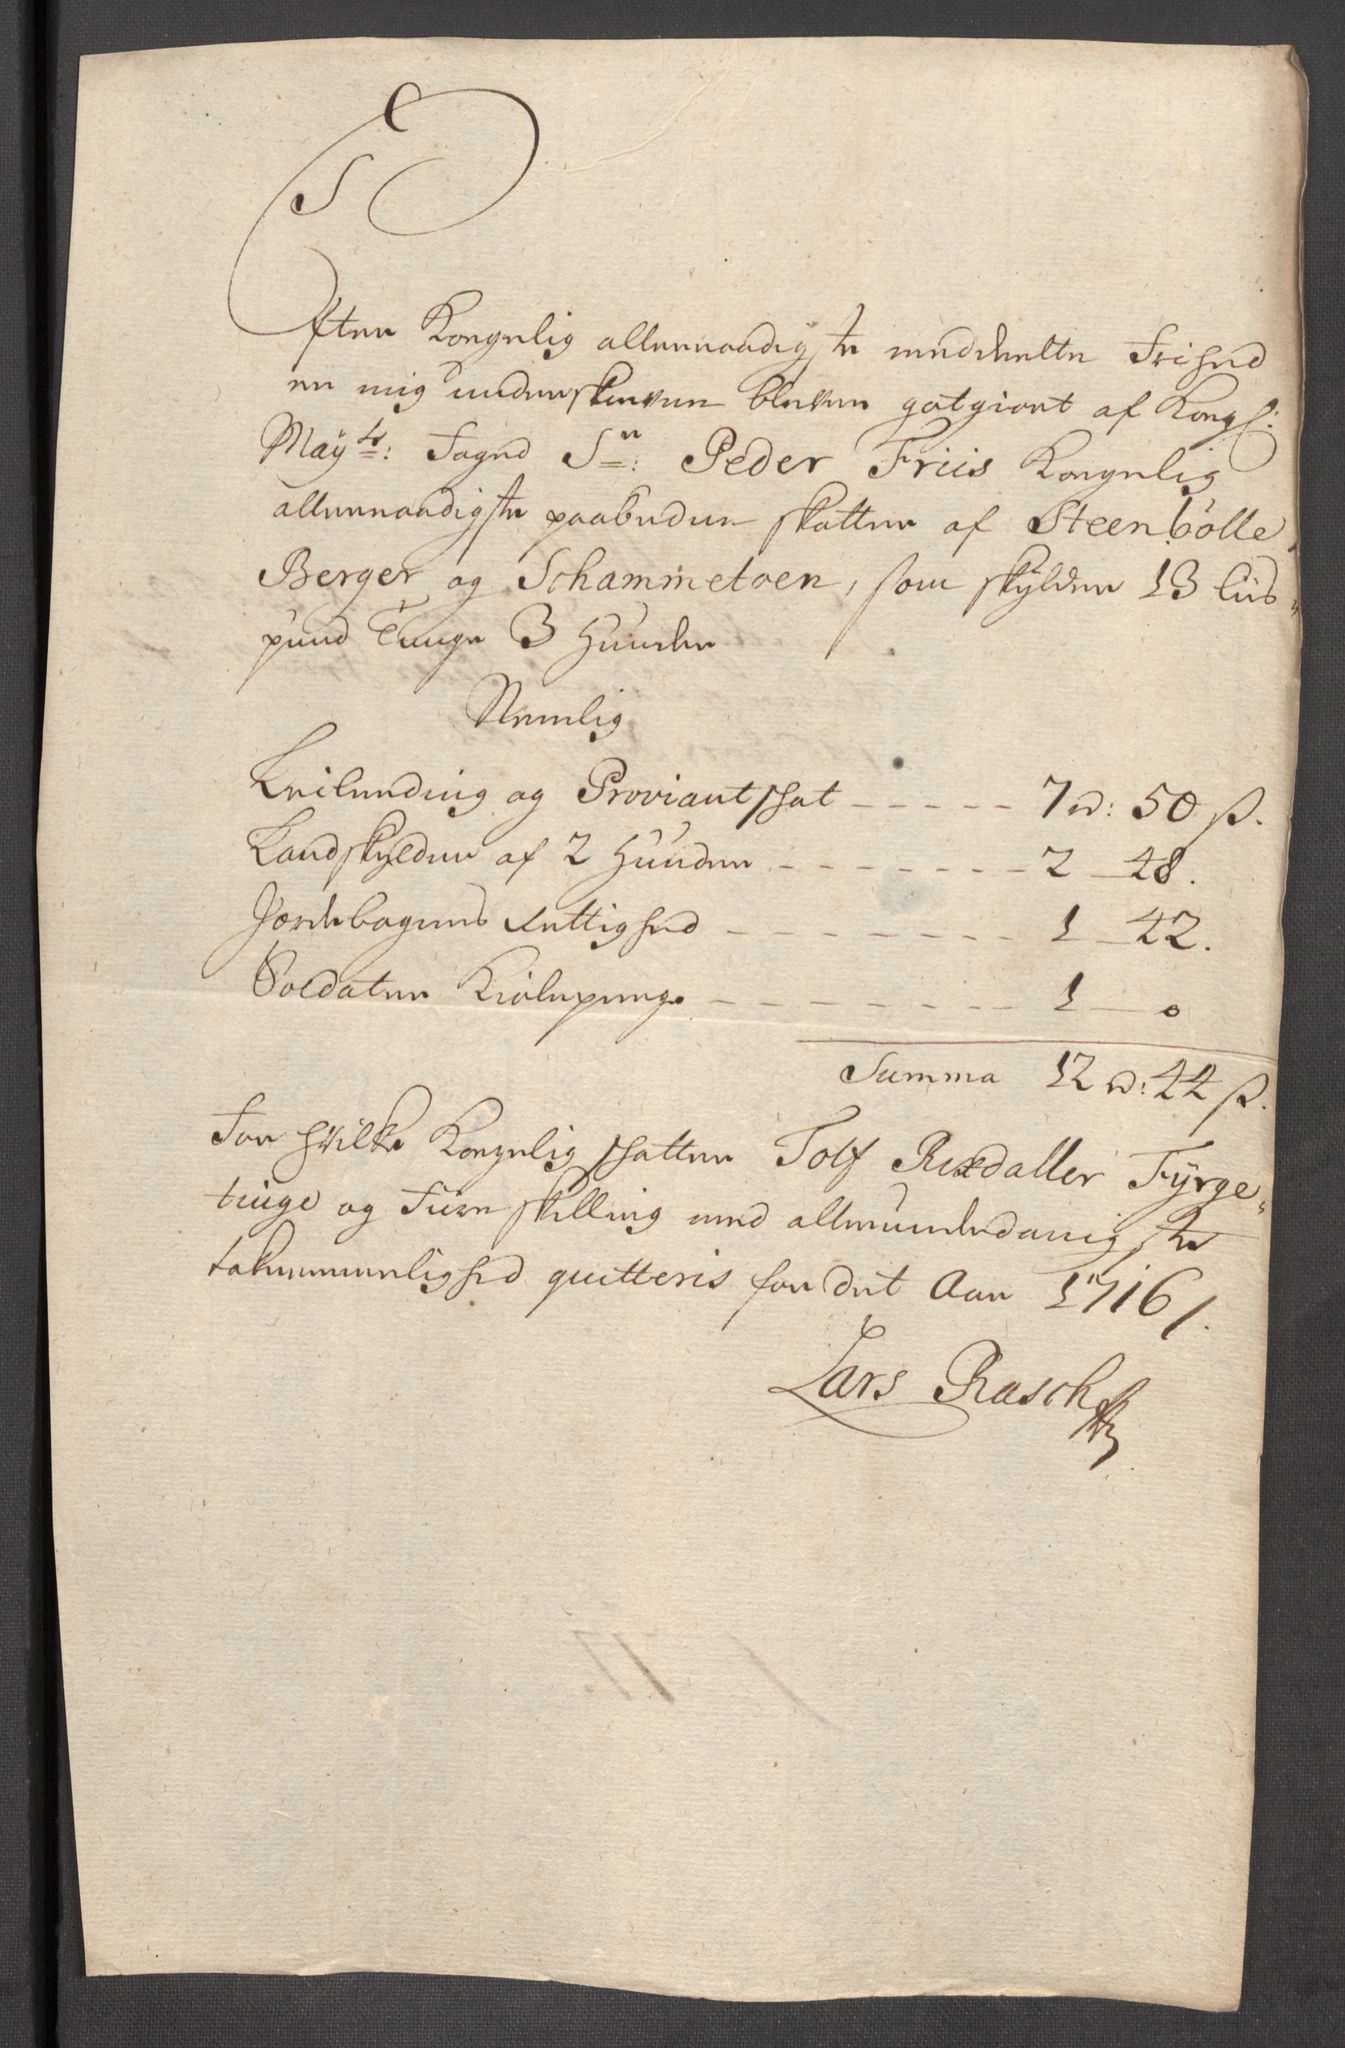 Efter Kongelig allernaadigste meddeelte Frihed
er mig underskreven bleven gotgiort af Kongl:
Mayts: Foged Sr: Peder Friis Kongelig
allernaadigste paabudene skatter af Steenbølle,
Berger og Schammetven, som skylder 13 Liis-
pund Tunge 3 Huuder
Nemlig
Leilending og Proviantschat ----- 7 rd: 50 s.
Landskylden af 2 Huuder ------- 2 – 48.
Jordebogens Rettighed -------- 1 – 42.
Soldater Kiolepenge -------- 1 – 0
Summa 12 rd: 44 s.
For hvilke Kongelig schatter Tolf Rixdaller Fyrge-
tiuge og Fiire skilling med allerunderdanigste
taknemmelighed quitteris for det Aar 1716/.
Lars Rasch